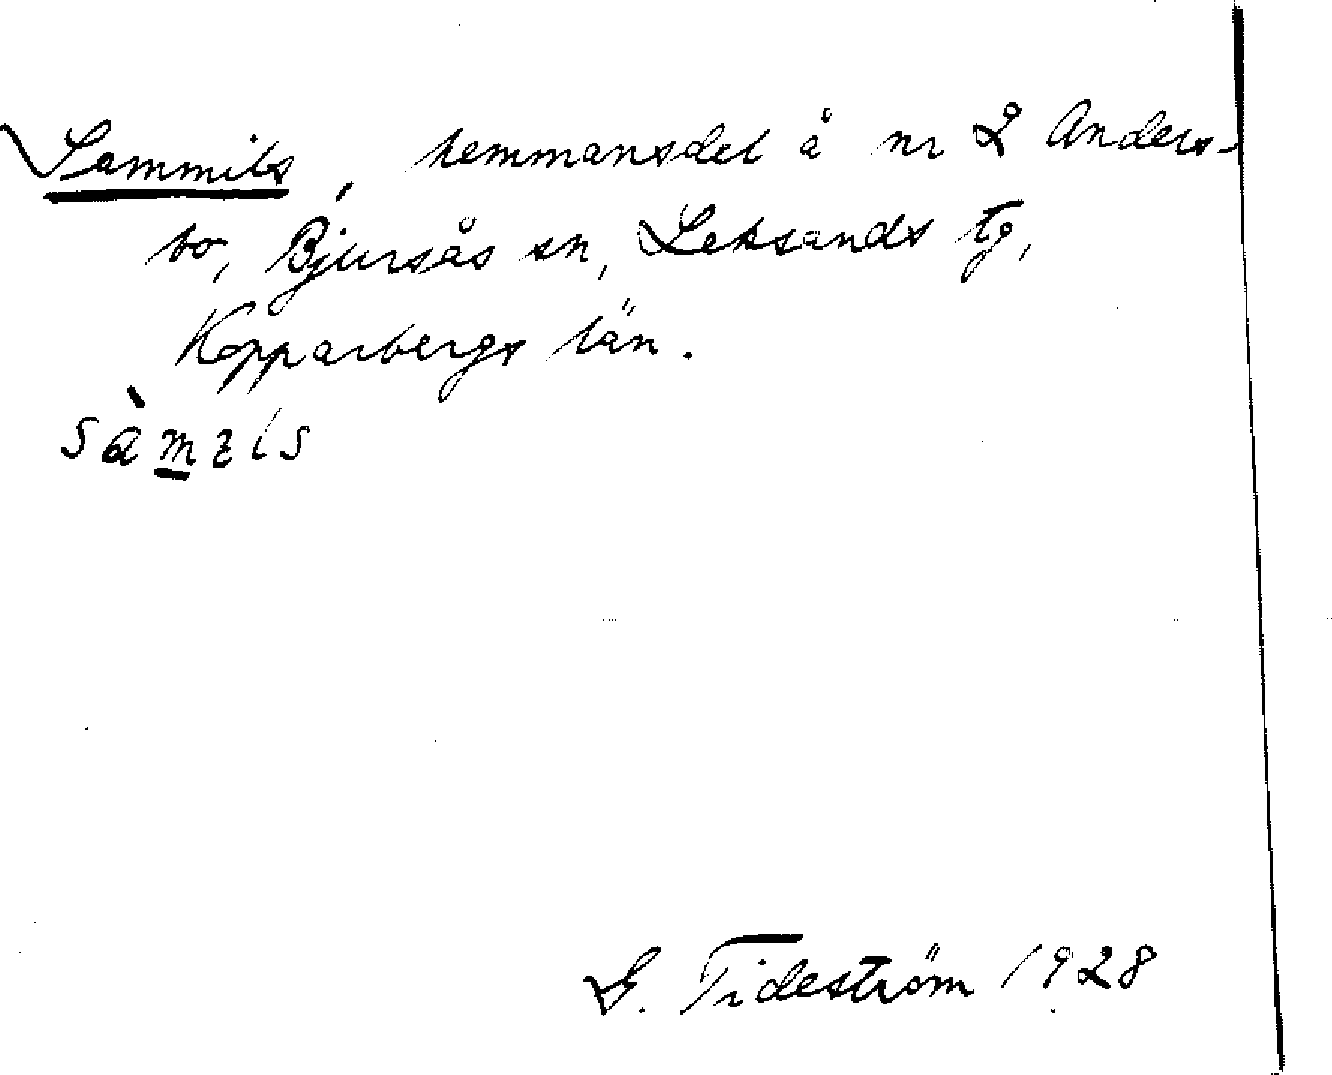 Sammils, hemmansdel å nr 2 Anders-
bo, Bjursås sn, Leksands tg,
Kopparbergs län.
G. Tideström 1928